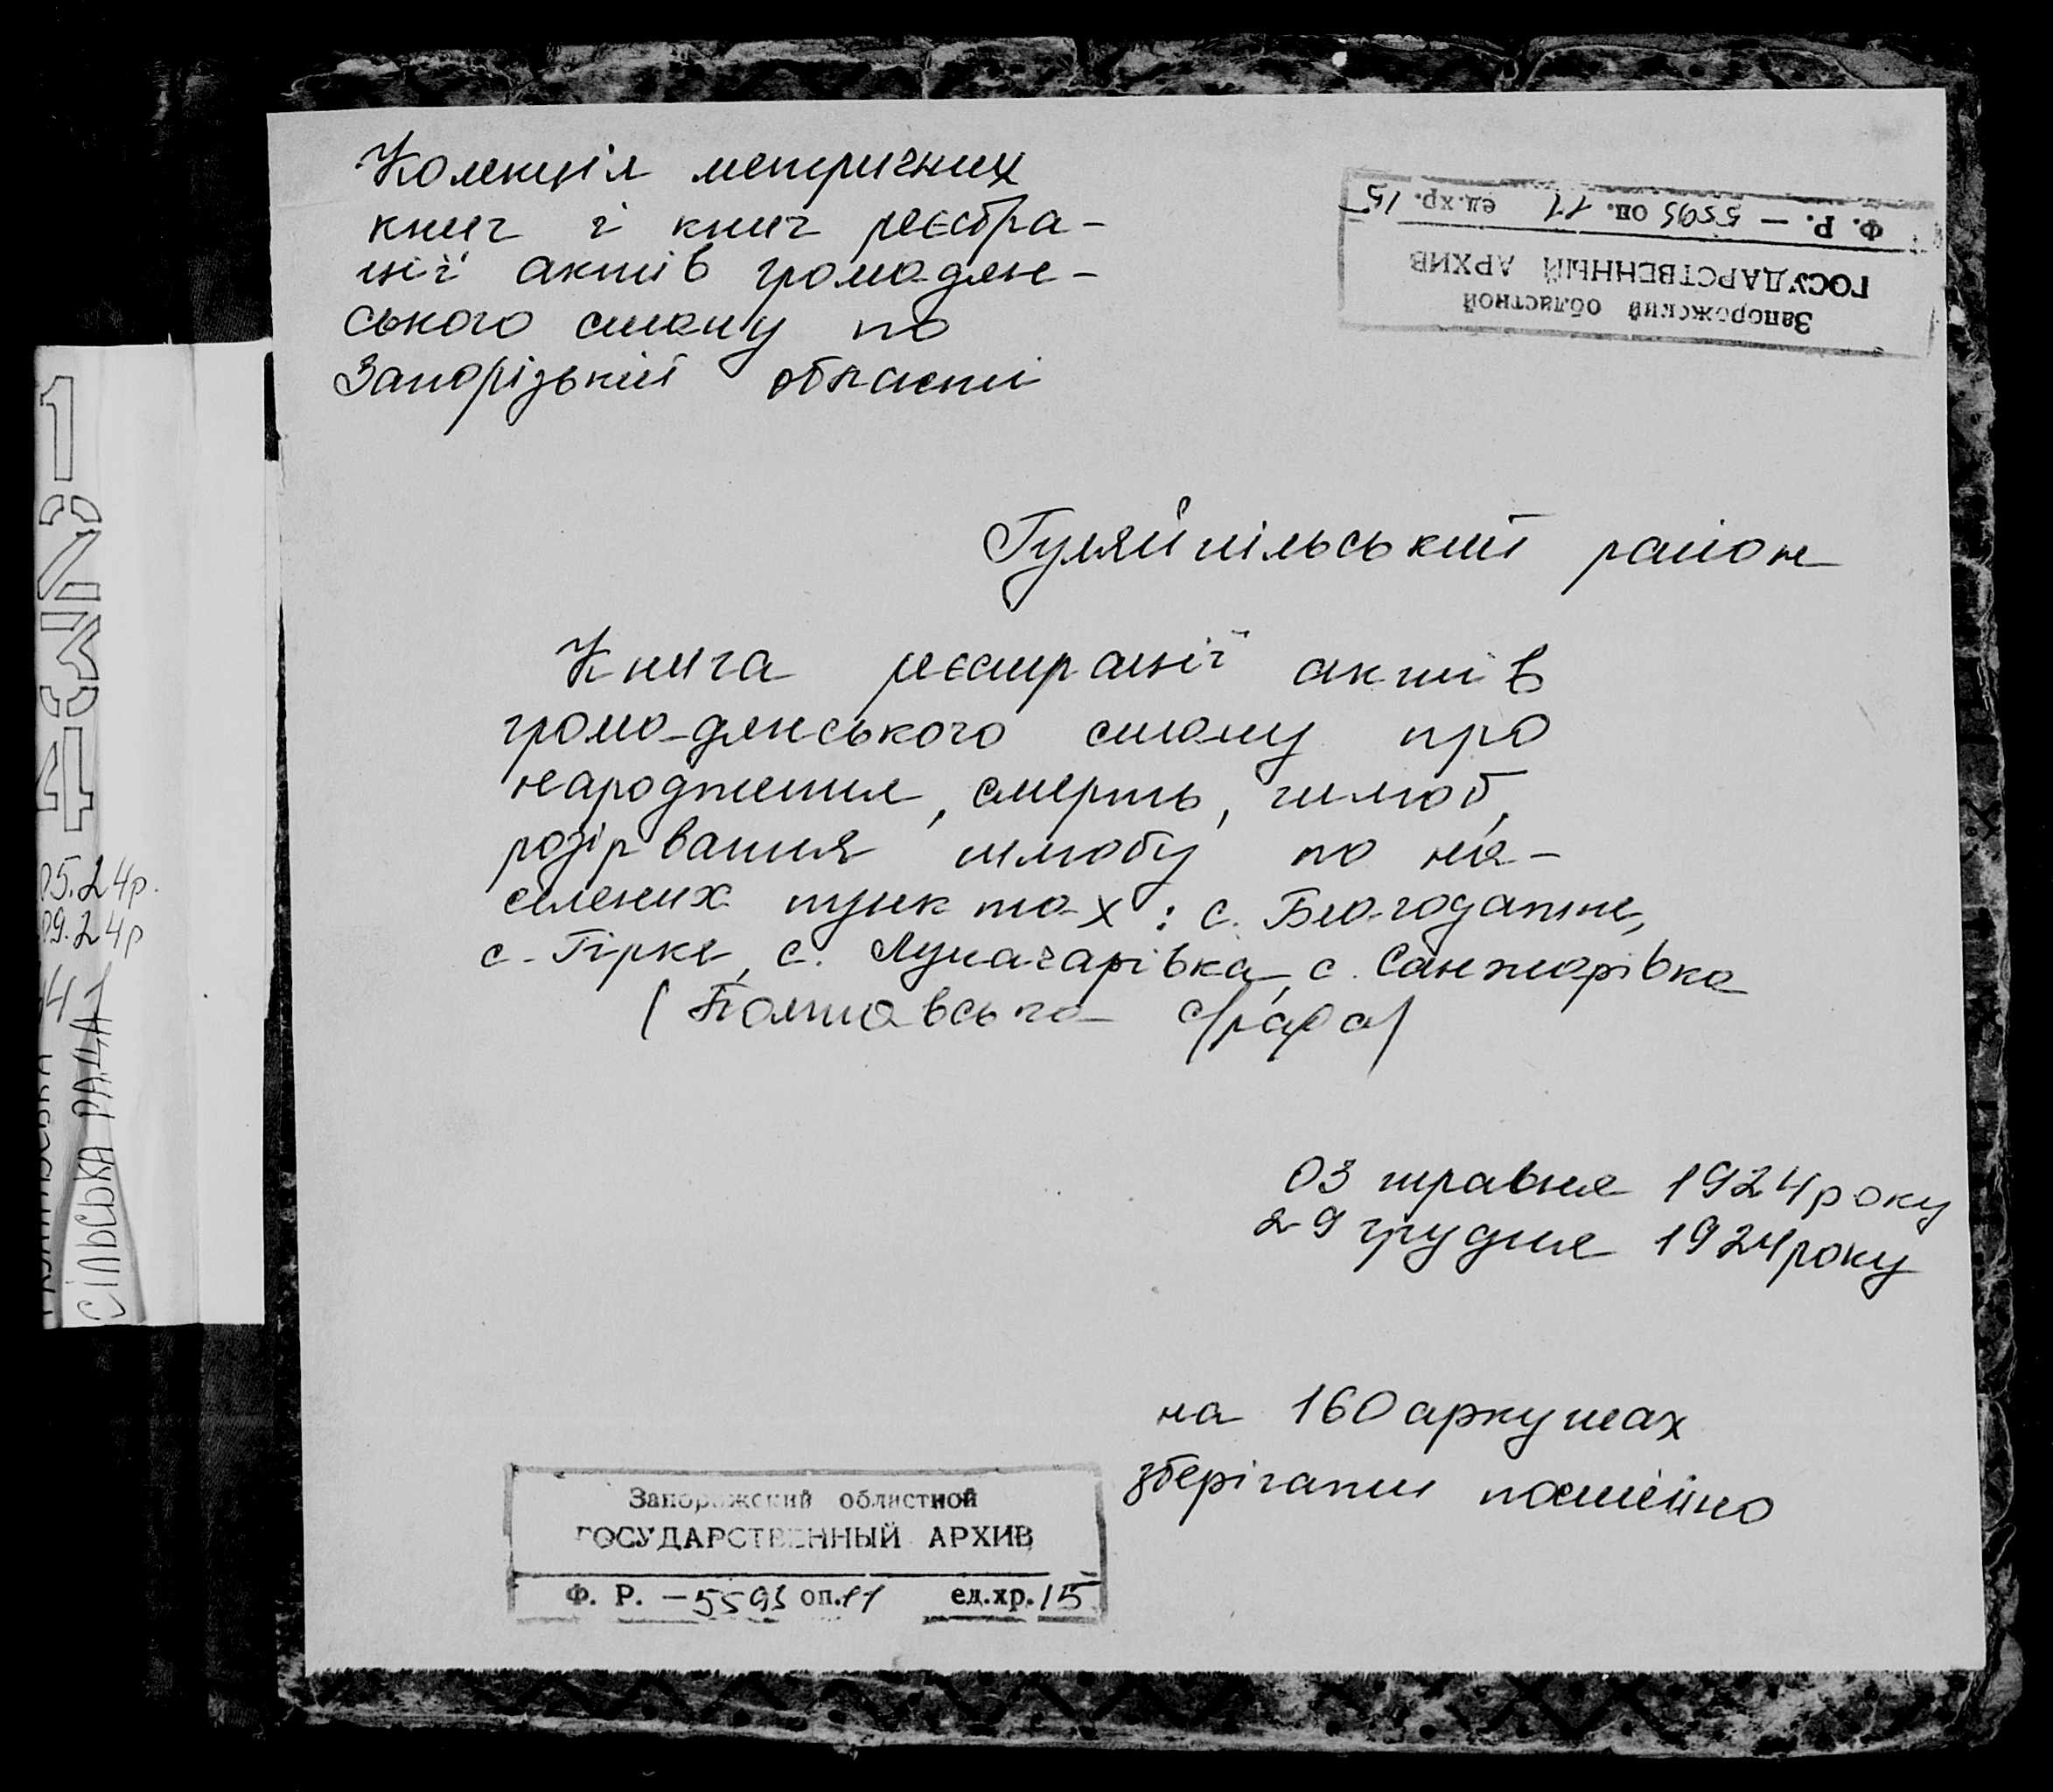 Колекція метричних
книг і книг реєстра-
ції актів громадян-
ського стану по
Запорізькій області
Запорожский областной
ГОСУДАРСТВЕННЫЙ АРХИВ
Ф. Р. — 5593 оп. 11 ед.хр. 15
Гуляйпільський район
Книга реєстрації актів
громадянського стану про
народження, смерть, шлюб,
розірвання шлюбу по на-
селених пунктах: с. Благодатне,
с. Гірке, с. Луначарівка, с. Санжарівка
(Полтавська с/рада)
03 травня 1924 року
29 грудня 1924 року
на 160 аркушах
зберігати постійно
Запорожский областной
ГОСУДАРСТВЕННЫЙ АРХИВ
Ф. Р. — 5593 оп. 11 ед.хр. 15
1234
05.24р.
09.24р
СІЛЬСЬКА РАДА